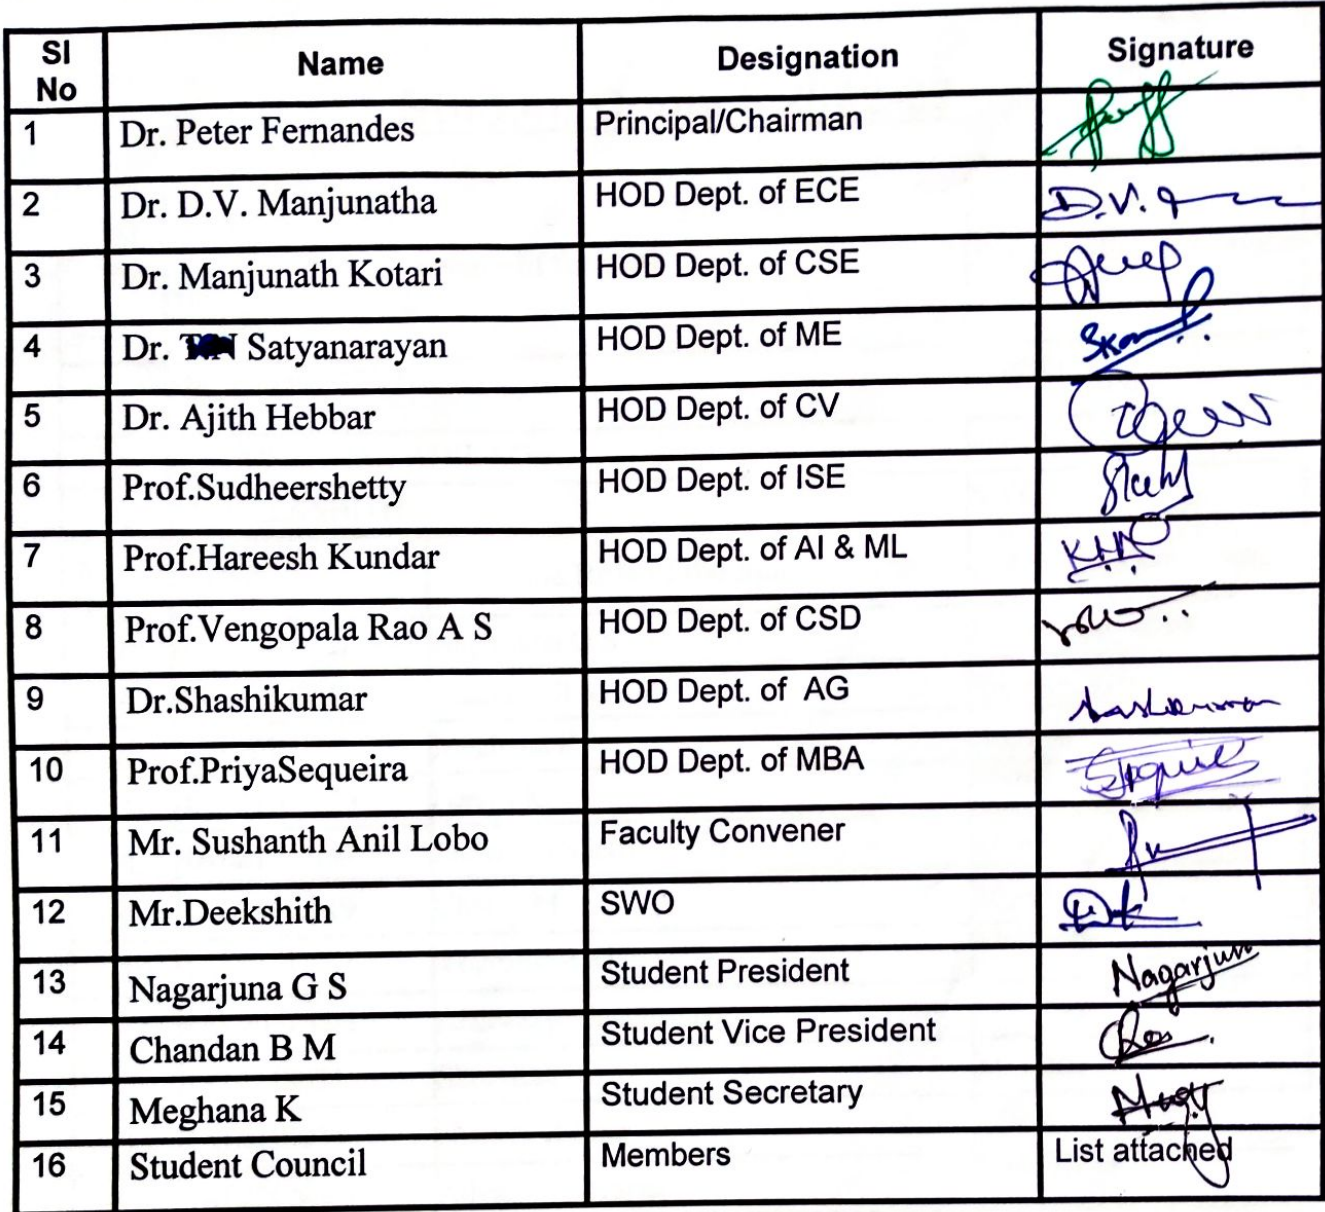 Sl No Name Designation Signature
1 Dr. Peter Fernandes Principal/Chairman
2 Dr. D.V. Manjunatha HOD Dept. of ECE D.V.
3 Dr. Manjunath Kotari HOD Dept. of CSE
4 Dr. Satyanarayan HOD Dept. of ME
5 Dr. Ajith Hebbar HOD Dept. of CV
6 Prof.Sudheershetty HOD Dept. of ISE
7 Prof.Hareesh Kundar HOD Dept. of AI & ML
8 Prof.Vengopala Rao A S HOD Dept. of CSD
9 Dr.Shashikumar HOD Dept. of AG
10 Prof.PriyaSequeira HOD Dept. of MBA
11 Mr. Sushanth Anil Lobo Faculty Convener
12 Mr.Deekshith SWO
13 Nagarjuna G S Student President Nagarjun
14 Chandan B M Student Vice President
15 Meghana K Student Secretary
16 Student Council Members List attached